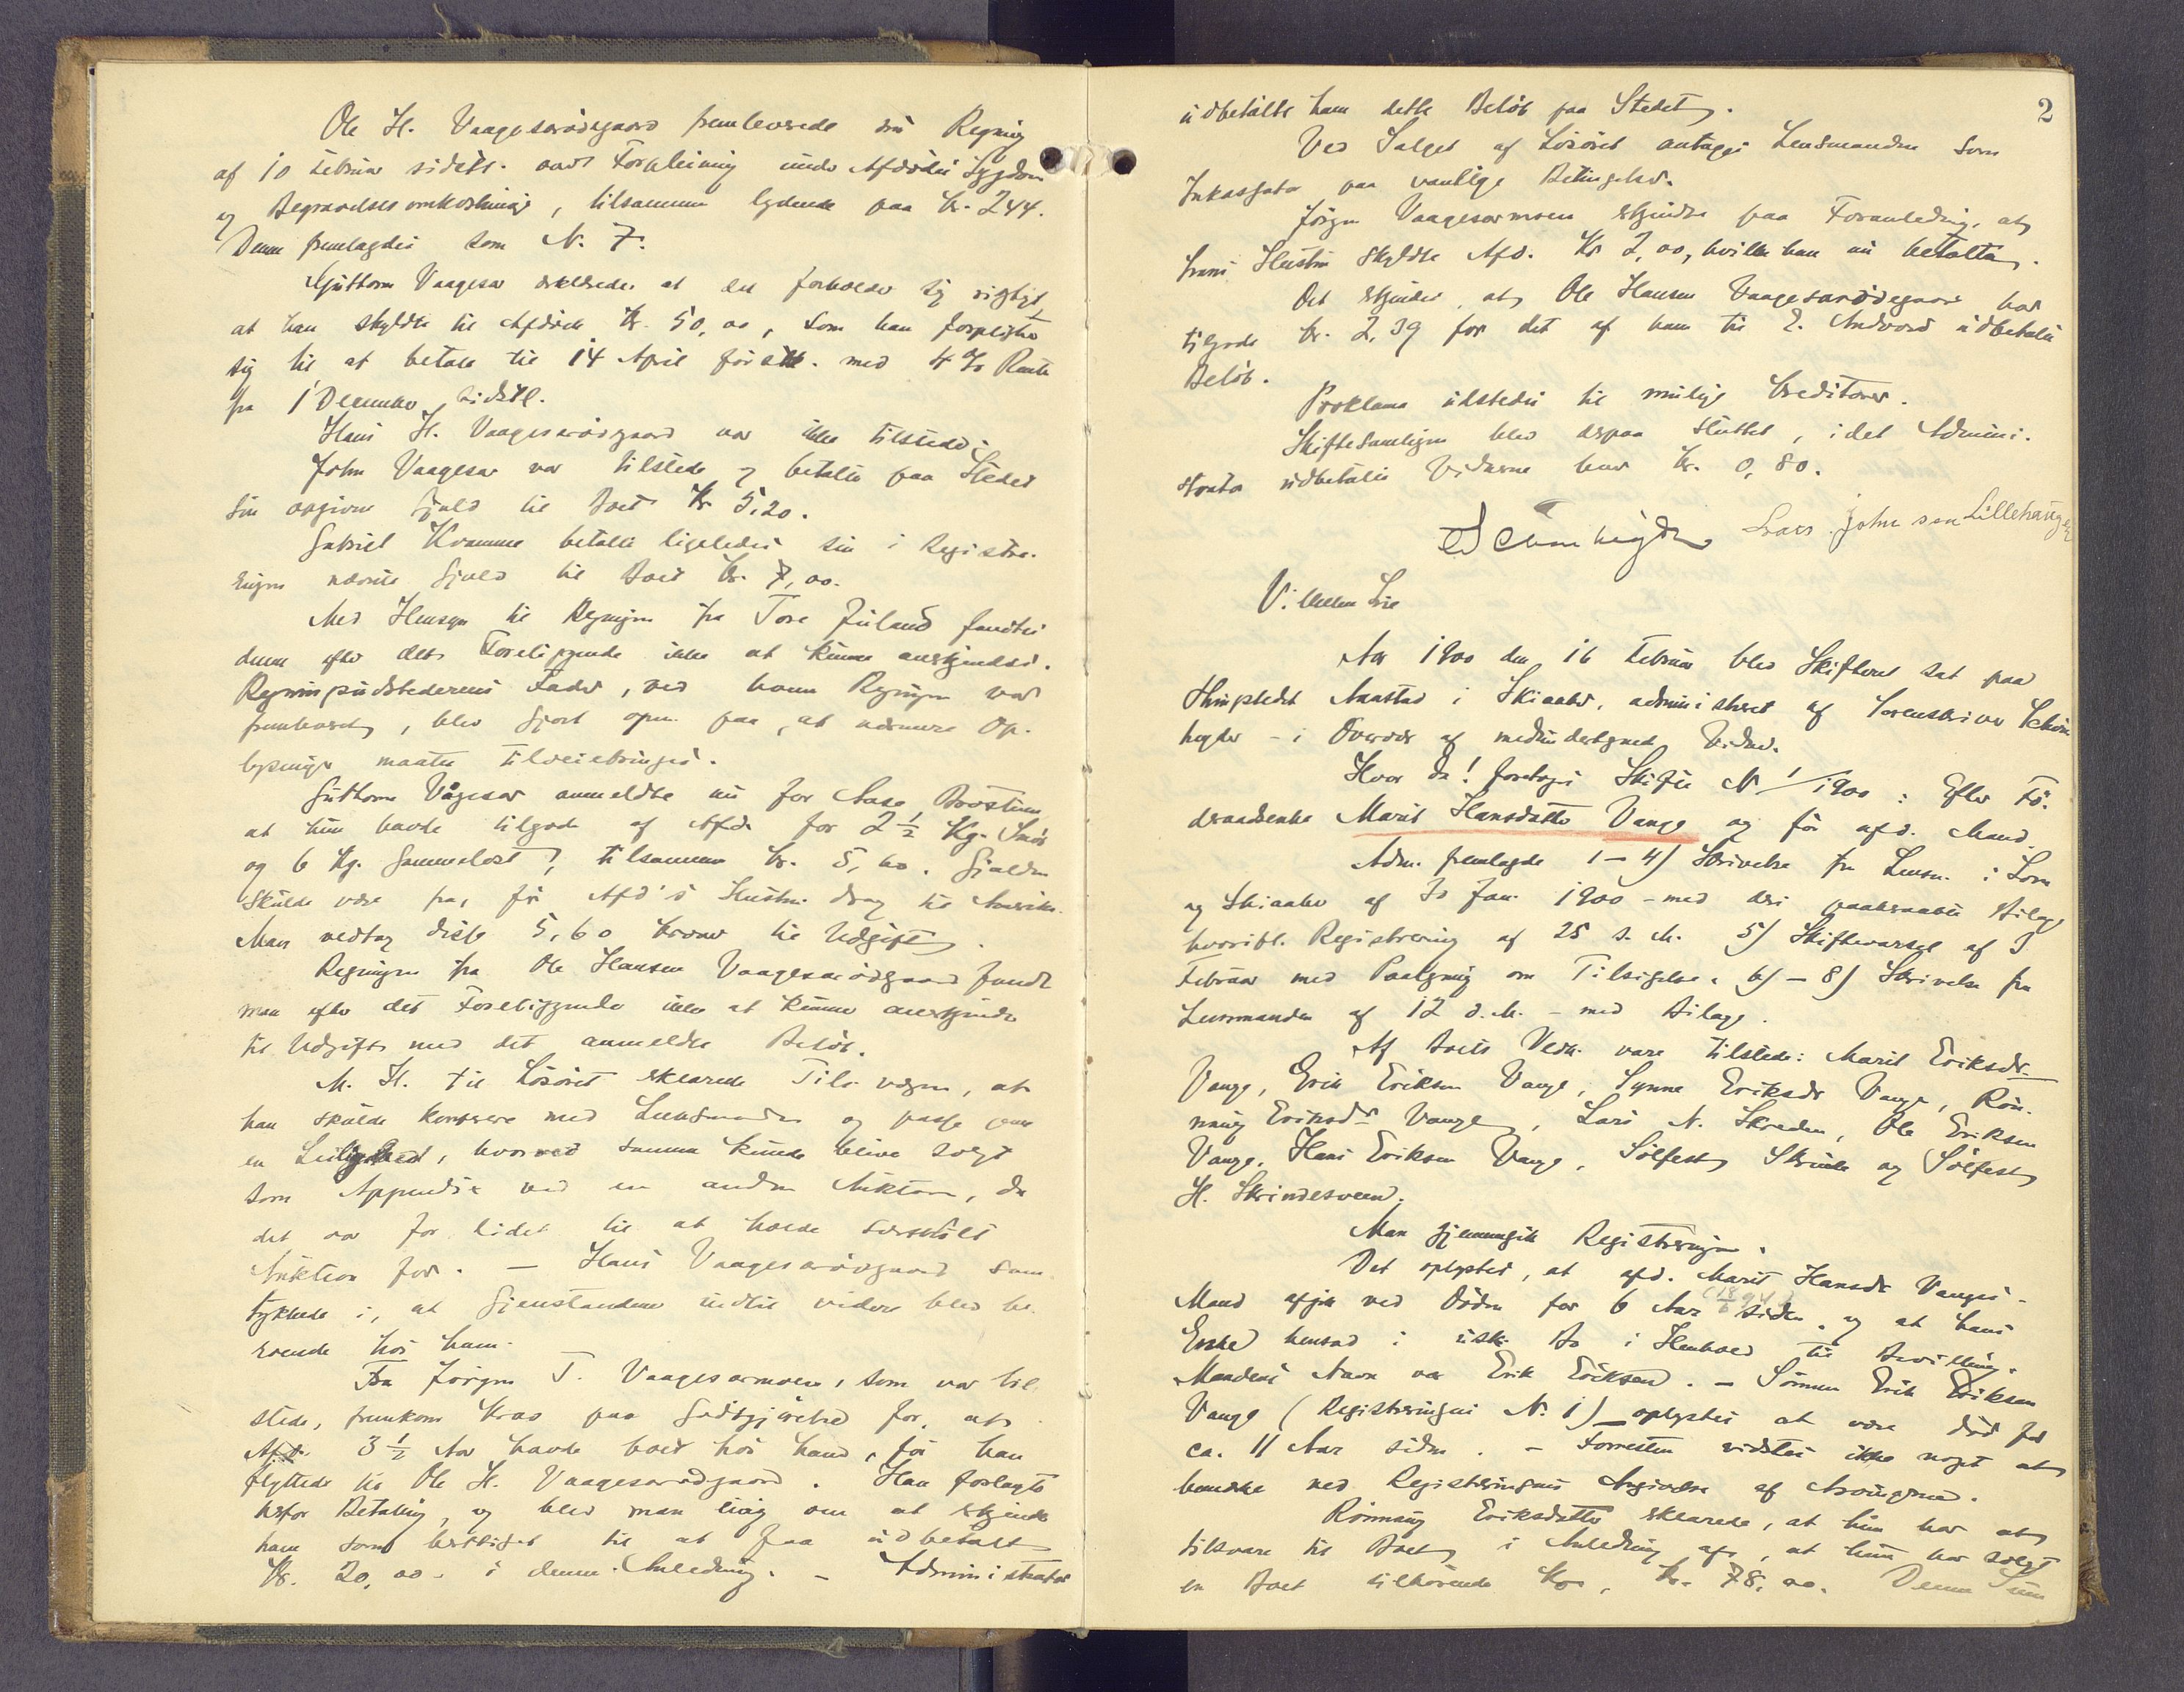 Ole H. Vaagesarødegaard fremleverede sin Regning
af 10 Februar sidstl. over Forpleining under Afdødes Sygdom
og Begravelsesomkostninger, tilsammen lydende paa Kr. 244.
Denne fremlagdes som N. 7.
Guttorm Vaagesar erklærede at det forholder sig rigtigt,
at han skyldte til Afdøde Kr. 50,00, som han forpligter
sig til at betale til 14 April førstk. med 4 % Rente
fra 1 December sidstl.
Hans H. Vaagesarødegaard var ikke tilstede.
John Vaagesar var tilstede og betalte paa Stedet
sin opgivne Gjæld til Boet Kr 5,20.
Gabriel Kvamme betalte ligeledes sin i Registre-
ringen nævnte Gjæld til Boet Kr. 7,00.
Med Hensyn til Regningen fra Tore Juland fandtes
denne efter det Foreliggende ikke at kunne anerkjendes.
Regningsudstederens Fader, ved hvem Regningen var
fremleveret, blev gjort opm. paa, at nærmere Op-
lysninger maatte tilveiebringes.
Guthorm Vågesar anmeldte nu for Aase
at hun havde tilgode af Afd. for 2 ½ Kg. Smør
og 6 Kg. Gammelost, tilsammen Kr. 5,60. Gjælden
skulde være fra, før Afd's Hustru drog til Amerika.
Man vedtog disse 5,60 Kroner til Udgift.
Regningen fra Ole Hansen Vaagesarødegaard fandt
man efter det Foreliggende ikke at kunne anerkjende
til Udgift med det anmeldte Beløb.
M. H. til Løsøret erklærede Tilsynsv., at
han skulde konferere med Lensmanden og passe paa
en Leilighed, hvorved samme kunde blive solgt
som Appendix ved en anden Auktion, da
det var for lidet til at holde særskilt
Auktion for. — Hans Vaagesarødegaard sam-
tykkede i, at Gjenstandene indtil videre blev be-
roende hos ham.
Fra Jørgen T. Vaagesarmoen, som var til-
stede, fremkom Krav paa Godtgjørelse for, at
Afd. 3 ½ Aar havde boet hos ham, før han
flyttede til Ole H. Vaagesarødegaard. Han forlangte
herfor Betaling, og blev man enig om at erkjende
ham som berettiget til at faa udbetalt
Kr. 20,00 i denne Anledning. — Administrator
2
udbetalte ham dette Beløb paa Stedet.
Ved Salget af Løsøret antages Lensmanden som
Inkassator paa vanlige Betingelser.
Jørgen Vaagesarmoen erkjendte paa Foranledning, at
hans Hustru skyldte Afd. Kr 2,00, hvilke han nu betalte.
Det erkjendes, at Ole Hansen Vaagesarødegaard har
tilgode Kr. 2,39 for det af ham til E. Andvord udbetalte
Beløb.
Proklama udstedes til mulige Creditorer.
Skiftesamlingen blev derpaa sluttet, idet Admini-
strator udbetalte Vidnerne hver Kr. 0,80.
Lars Johnsen Lillehaugen
Aar 1900 den 16 Februar blev Skifteret sat paa
Thingstedet Aanstad i Skiaker, administreret af Sorenskriver Schön-
heyder — i Overvær af medundertegnede Vidner.
Hvor da! foretoges Skifte N 1/1900: Efter Fø-
deraadsenke Marit Hansdatter Vange og før afd. Mand.
Adm. fremlagde 1–4) Skrivelse fra Lensm. i Lom
og Skiaker af 30 Jan. 1900 – med der paaberaabte Bilage
hvoribl. Registrering af 25 s. M. 5) Skiftevarsel af 3
Februar med Paategning om Tilsigelse. 6) – 8) Skrivelse fra
Lensmanden af 12 d. M. – med Bilage.
Af Boets Vedk. vare tilstede: Marit Eriksdr.
Vange, Erik Eriksen Vange, Synne Eriksdr Vange, Røn-
naug Eriksdr Vange, Lars N. Skreden, Ole Eriksen
Vange, Hans Eriksen Vange, Sølfest Skrinde og Sølfest
H. Skrindesveen.
Man gjennemgik Registreringen.
Det oplystes, at afd. Marit Hansdr Vanges
Mand afgik ved Døden for 6 Aar siden, og at hans
Enke hensad i usk. Bo i Henhold til Bevilling.
Mandens Navn var Erik Eriksen. — Sønnen Erik Eriksen
Vange (Registreringens N. 1) oplystes at være død for
ca. 11 Aar siden. — Forresten vidstes ikke noget at
bemærke ved Registreringens Angivelse af Arvingerne.
Rønnaug Eriksdatter erklærede, at hun har at
tilsvare til Boet i Anledning af, at hun har solgt
en Boet tilhørende Ko, Kr. 78,00. Denne Sum